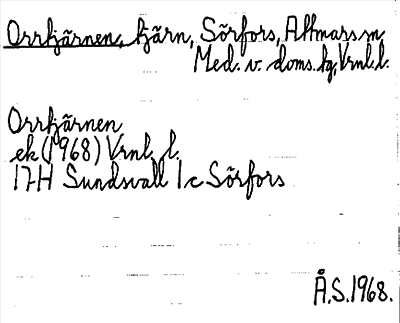 Orrtjärnen, tjärn, Sörfors, Attmars sn,
Med. v. doms. tg, Vrnl. l.
Orrtjärnen
ek (1968) Vrnl. l.
17H Sundsvall 1 c Sörfors
Å.S. 1968.